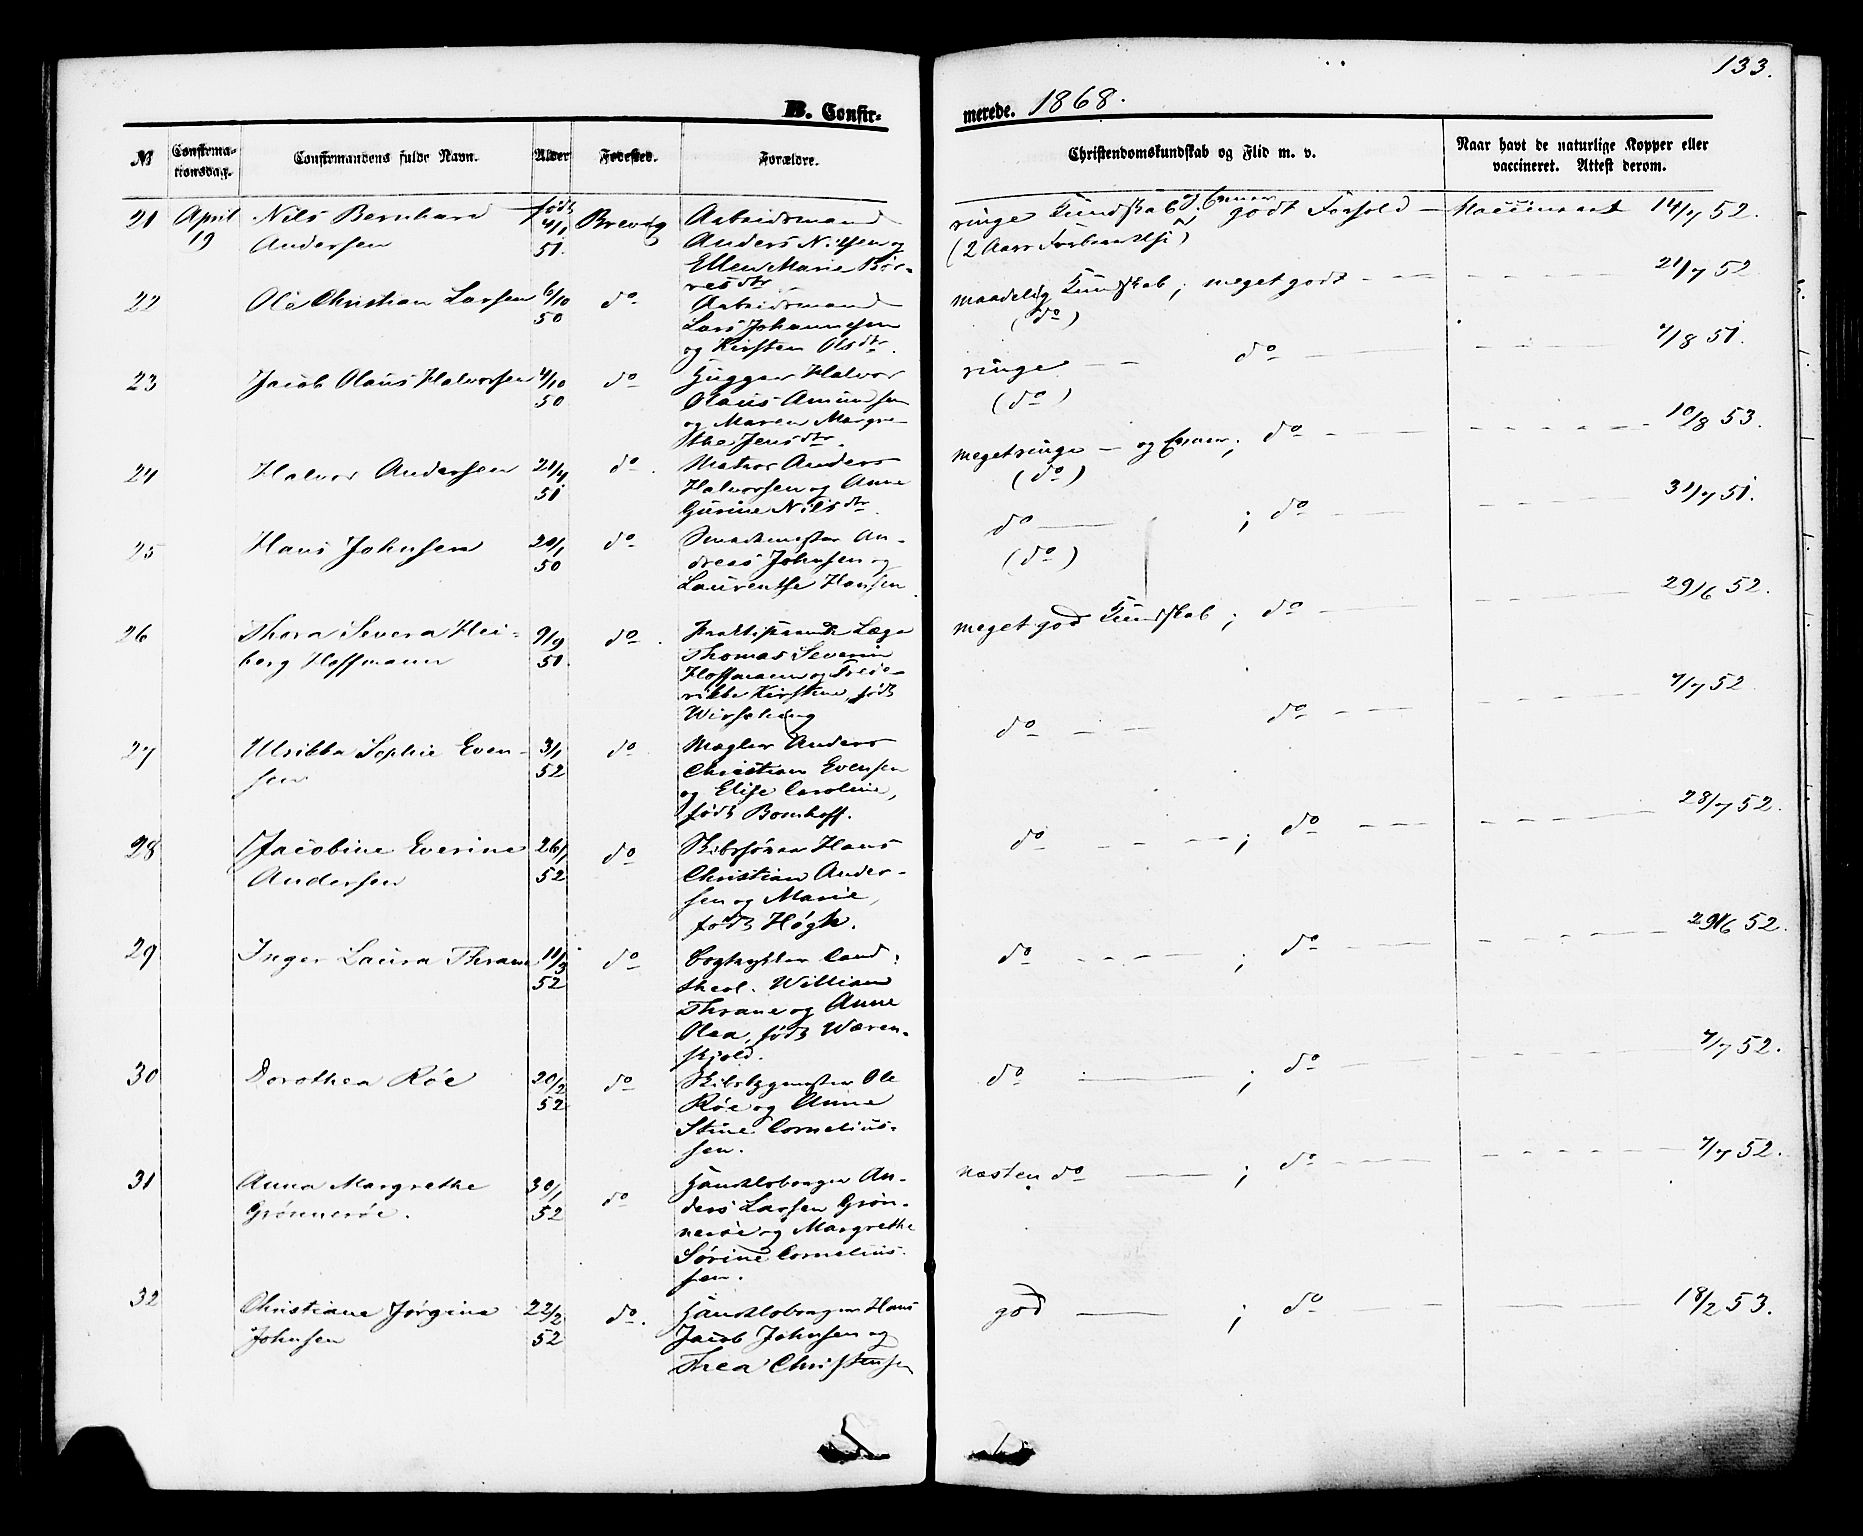 133.
B. Confir-
merede. 1868.
№
Confirma-
tionsdag.
Confirmandens fulde Navn.
Alder
Fødested.
Forældre.
Christendomskundskab og Flid m. v.
Naar havt de naturlige Kopper eller
vaccineret. Attest derom.
21 April Nils Bernhard født Brevig Arbeidsmand ringe Kundskab godt Forhold — Vaccineret 14/7 52.
19 Andersen 4/1 Anders Nilsen og (2 Aars Forberedelse)
51. Ellen Marie Bør-
resdtr
22 Ole Christian Larsen 6/10 do Arbeidsmand maadelig Kundskab; meget godt — 21/7 52
50 Lars Johannesen (do)
og Kirsten Olsdtr.
23 Jacob Olaus Halvorsen 4/10 do Halvor ringe — do — 7/8 51.
50 Olaus Amundsen (do)
og Maren Margre-
the Jensdtr.
24 Halvor Andersen 21/4 do. Matros Anders meget ringe — og Evner; do — 10/8 53.
51 Halvorsen og Anne (do)
Gurine Nilsdtr.
25 Hans Johnsen 20/1 do Smedmester An- do — ; do — 31/7 51.
50 dreas Johnsen og (do)
Laurentse Hansen.
26 Thora Severa Hei- 9/9 do. praktiserende Læge meget god Kundskab; do — 29/6 52.
berg Hoffmann 51. Thomas Severin
Hoffmann og Frede-
rikke Kirstine, født
27 Ulrikka Sophie Even- 3/1 do. Mægler Anders do — do — 7/7 52
sen 52 Christian Evensen
og Elise Caroline,
født Bomhoff.
28 Jacobine Everine 26/1 do Skibsfører Hans do — ; do — 28/7 52.
Andersen 52 Christian Ander-
sen og Marie,
født Høgh.
29 Inger Laura Thrane 11/3 do Bogtrykker Cand. do — ; do — 29/6 52.
52 theol. William
Thrane og Anne
Olea, født Wæren-
skjold.
30 Dorothea Röe 20/2 do Skibsbygmester Ole do — ; do — 7/7 52.
52 Röe og Anne
Stine Cornelius-
sen.
31 Anna Margrethe 30/1 do Handelsborger An- næsten do — ; do — 7/7 52.
Grønneröe. 52 ders Larsen Grøn-
neröe og Margrethe
Sörine Cornelius-
sen.
32 Christiane Jørgine 22/2 do. Handelsborger Hans god — ; do — 18/2 53.
Johnsen 52 Jacob Johnsen og
Thea Christensen